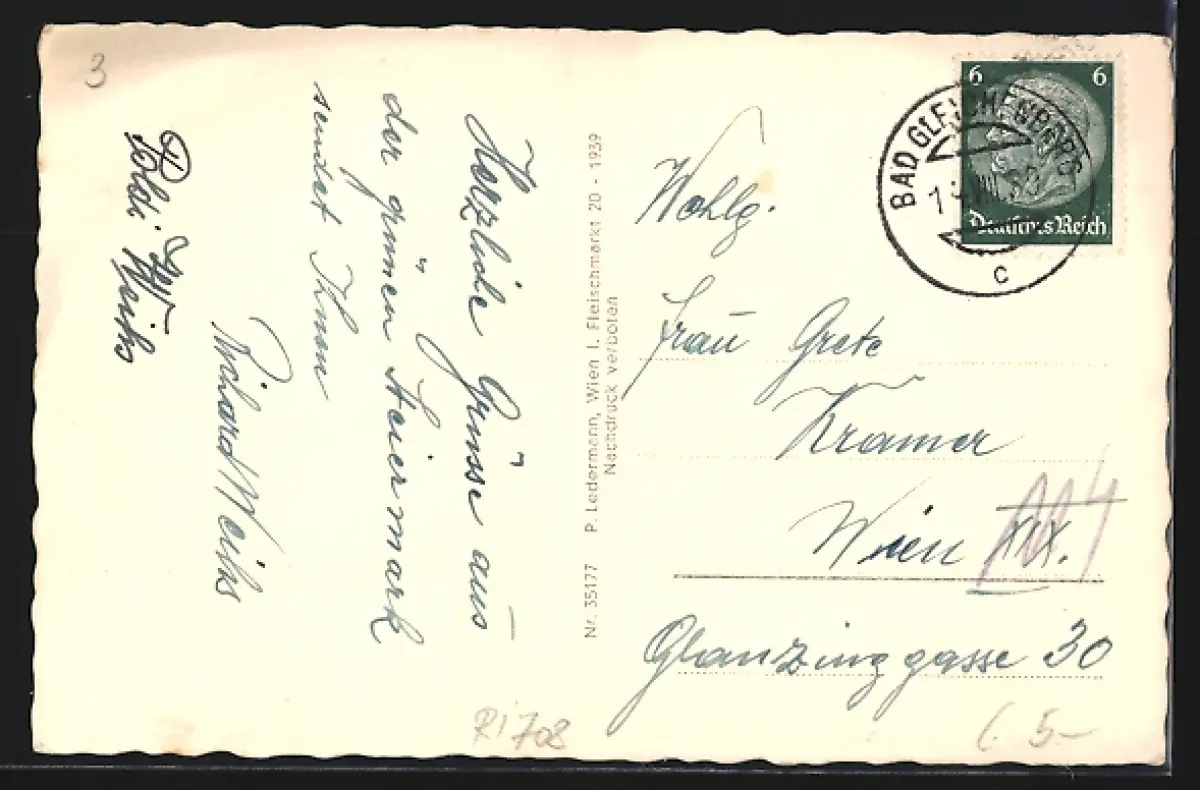 3
Herzliche Grüsse aus
der grünen Steiermark
sendet Ihnen
Richard Weihs
Poldi Weihs
Nr. 35177 P. Ledermann, Wien I. Fleischmarkt 20 - 1939
Nachdruck verboten
6 6
Deutsches Reich
BAD GLEICHENBERG
c
Wohlg.
Frau Grete
Kramer
Wien XIX.
Glanzinggasse 30
RI708
5-